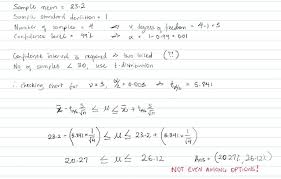 Sample mean = 23.2
Sample standard deviation = 1
Number of samples = 4 ⇒ degrees of freedom = 4-1 = 3
Confidence level = 99% ⇒ α = 1-0.99 = 0.01
Confidence interval is required ⇒ two tailed (??)
No of samples < 30, use t-distribution
∴ checking chart for ν = 3, α/2 = 0.005 ⇒ tα/2 = 5.841
x̄ - tα/2 s/√n ≤ μ ≤ x̄ + tα/2 s/√n
23.2 - (5.841 × 1/√4) ≤ μ ≤ 23.2 + (5.841 × 1/√4)
20.27 ≤ μ ≤ 26.12 Ans = (20.27, 26.12)
NOT EVEN AMONG OPTIONS!